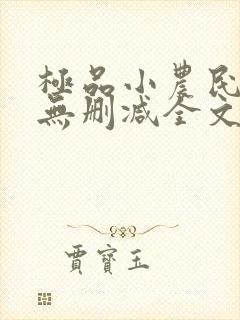 極品小農民
無刪减全文
賈寶玉